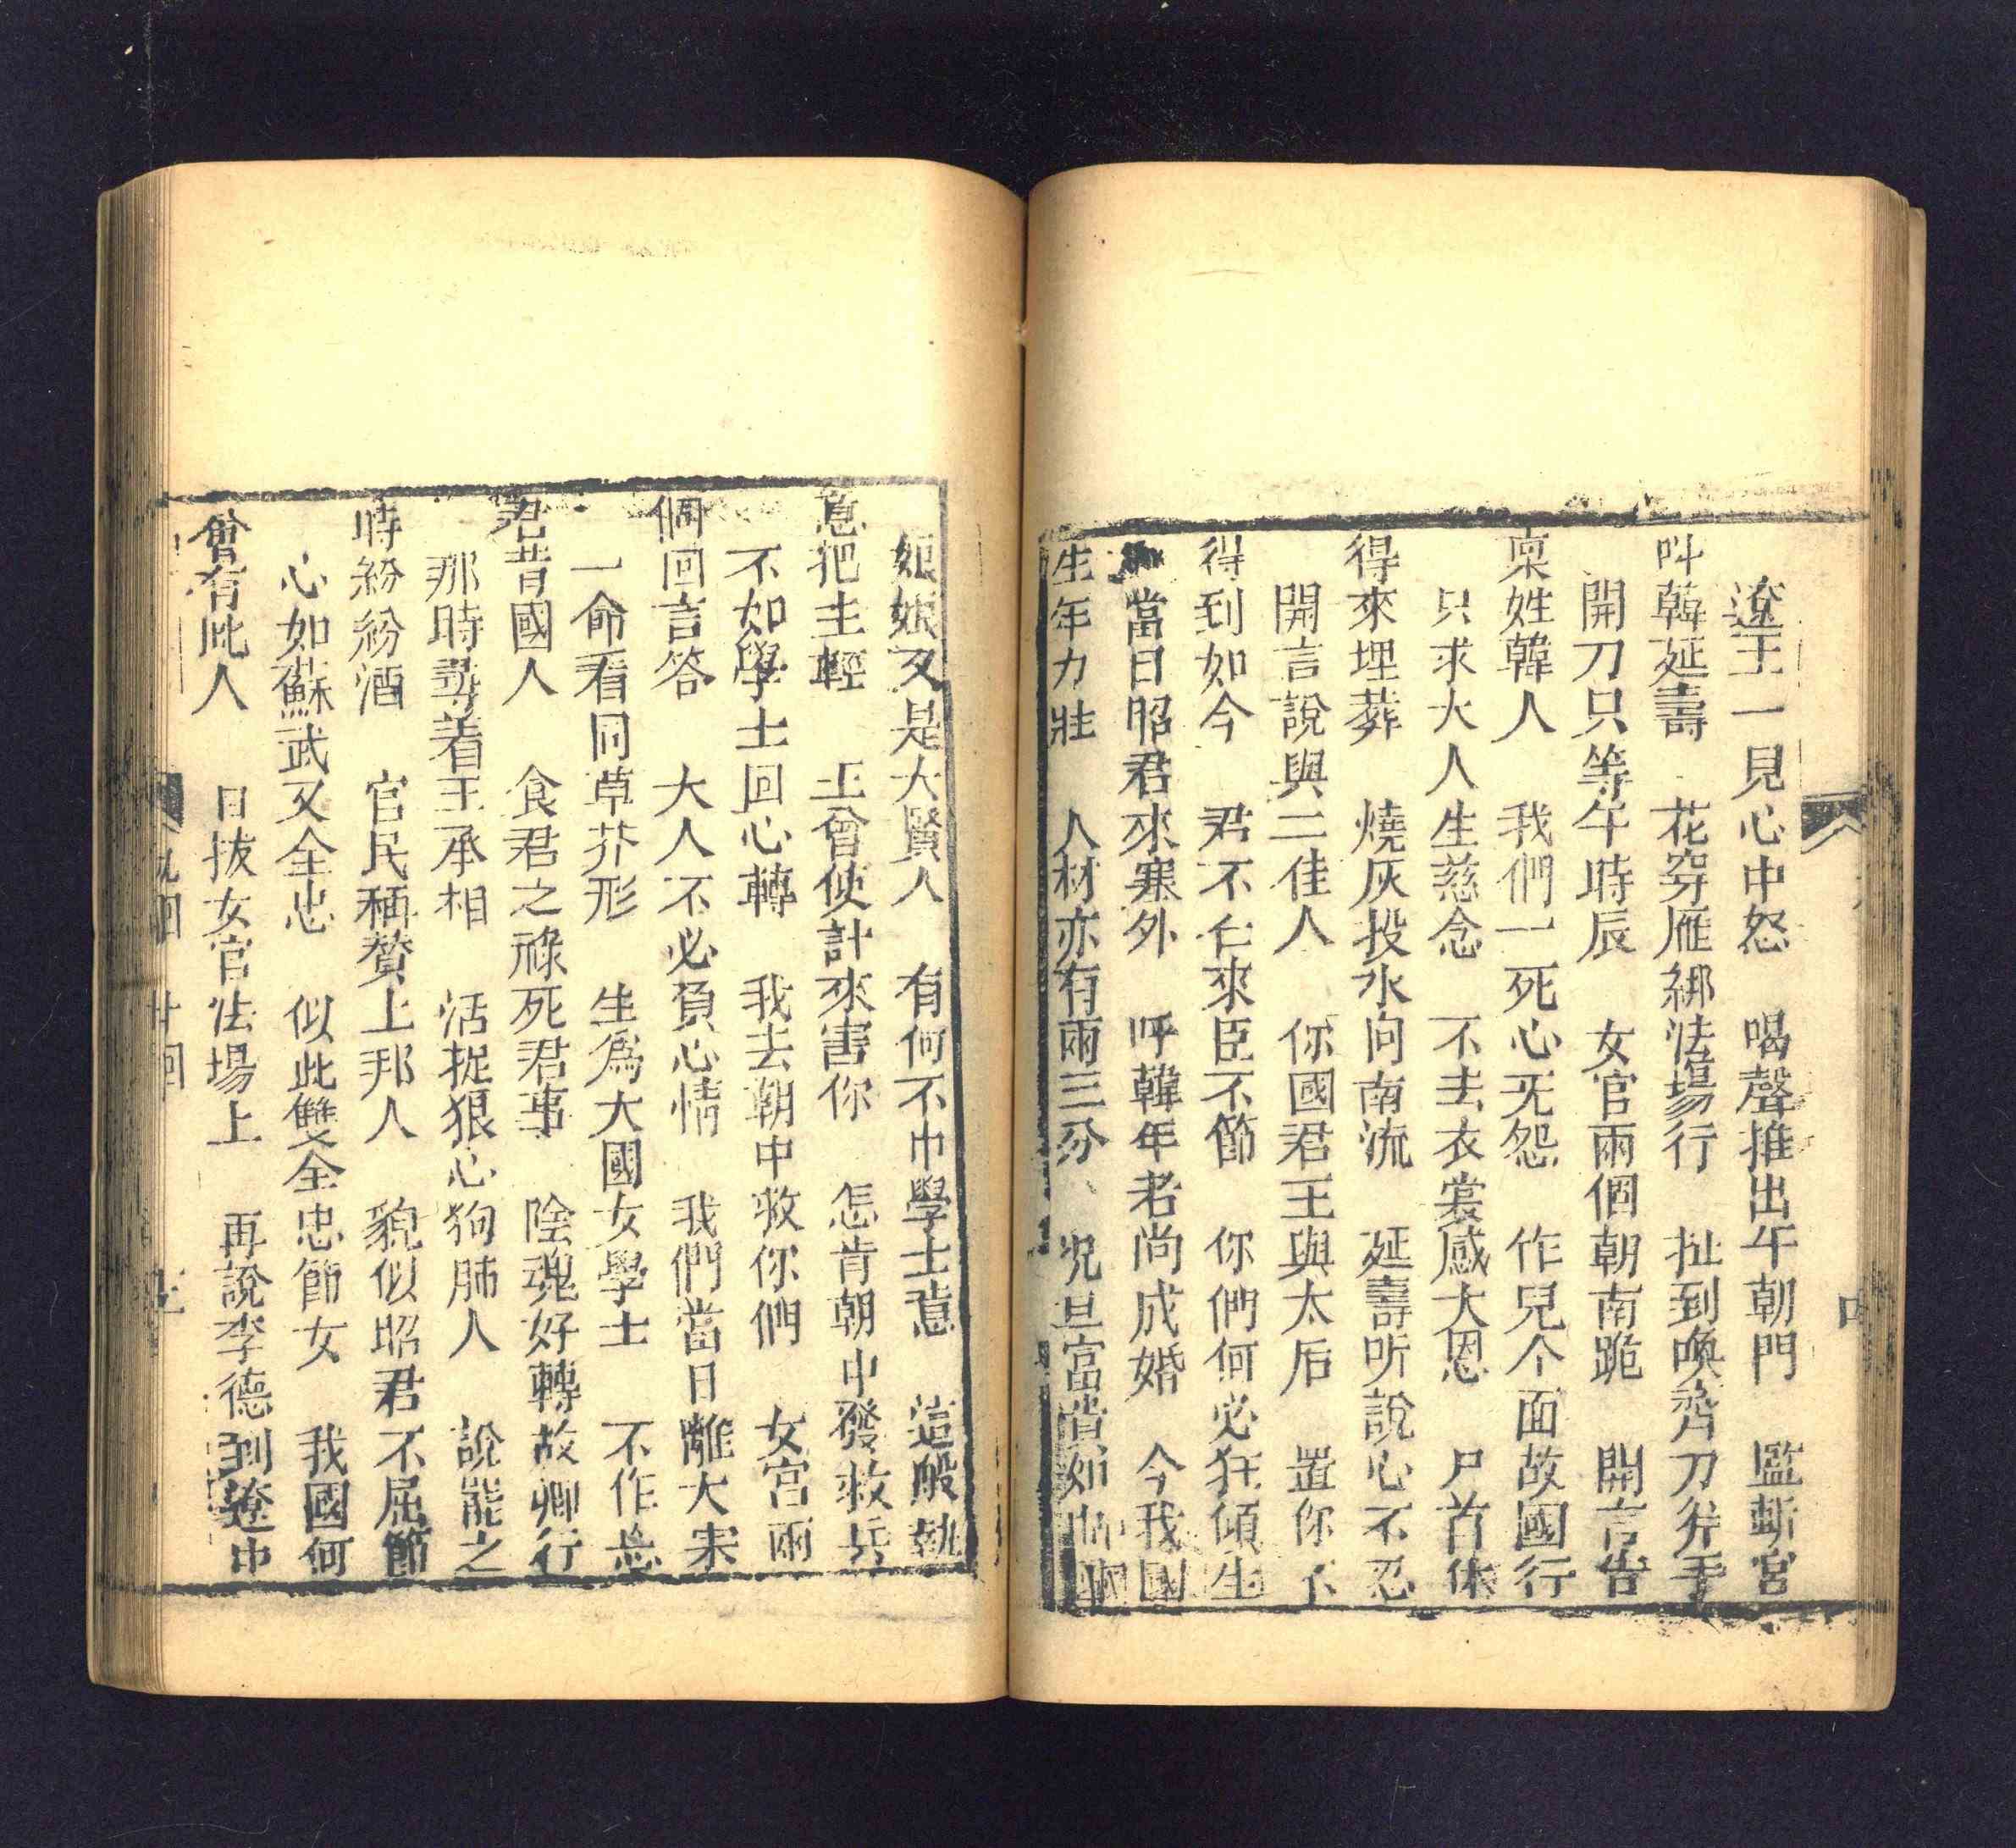 遼王一見心中怒 喝聲推出午朝門 監斬官
叫韓延壽 花穿雁綁法場行 扯到喚齊刀斧手
開刀只等午時辰 女官兩個朝南跪 開言告
稟姓韓人 我們一死心无怨 作兒个面故國行
只求大人生慈念 不去衣裳感大恩 尸首休
得來埋葬 燒灰投水向南流 延壽听說心不忍
開言說與二佳人 你國君王與太后 置你不
得到如今 君不仁來臣不節 你們何必狂傾生
當日昭君來寒外 呼韓年老尚成婚 今我國
生年力壯 人材亦有兩三分 况且富貴如
娘娘又是大賢人 有何不巾學士意 這般執
意把主輕 王曾使計來害你 怎肯朝中發救兵
不如學士回心轉 我去朝中救你們 女宮兩
個回言答 大人不必負心情 我們當日離大宋
一命看同草芥形 生為大國女學士 不作忘
君昔國人 食君之祿死君事 陰魂好轉故鄉行
那時尋着王承相 活捉狠心狗肺人 說罷之
時紛紛酒 官民稱贊上邦人 貌似昭君不屈節
心如蘇武又全忠 似此雙全忠節女 我國何
曾有此人 日抜女官法場上 再說李德到遼中
回 廿回